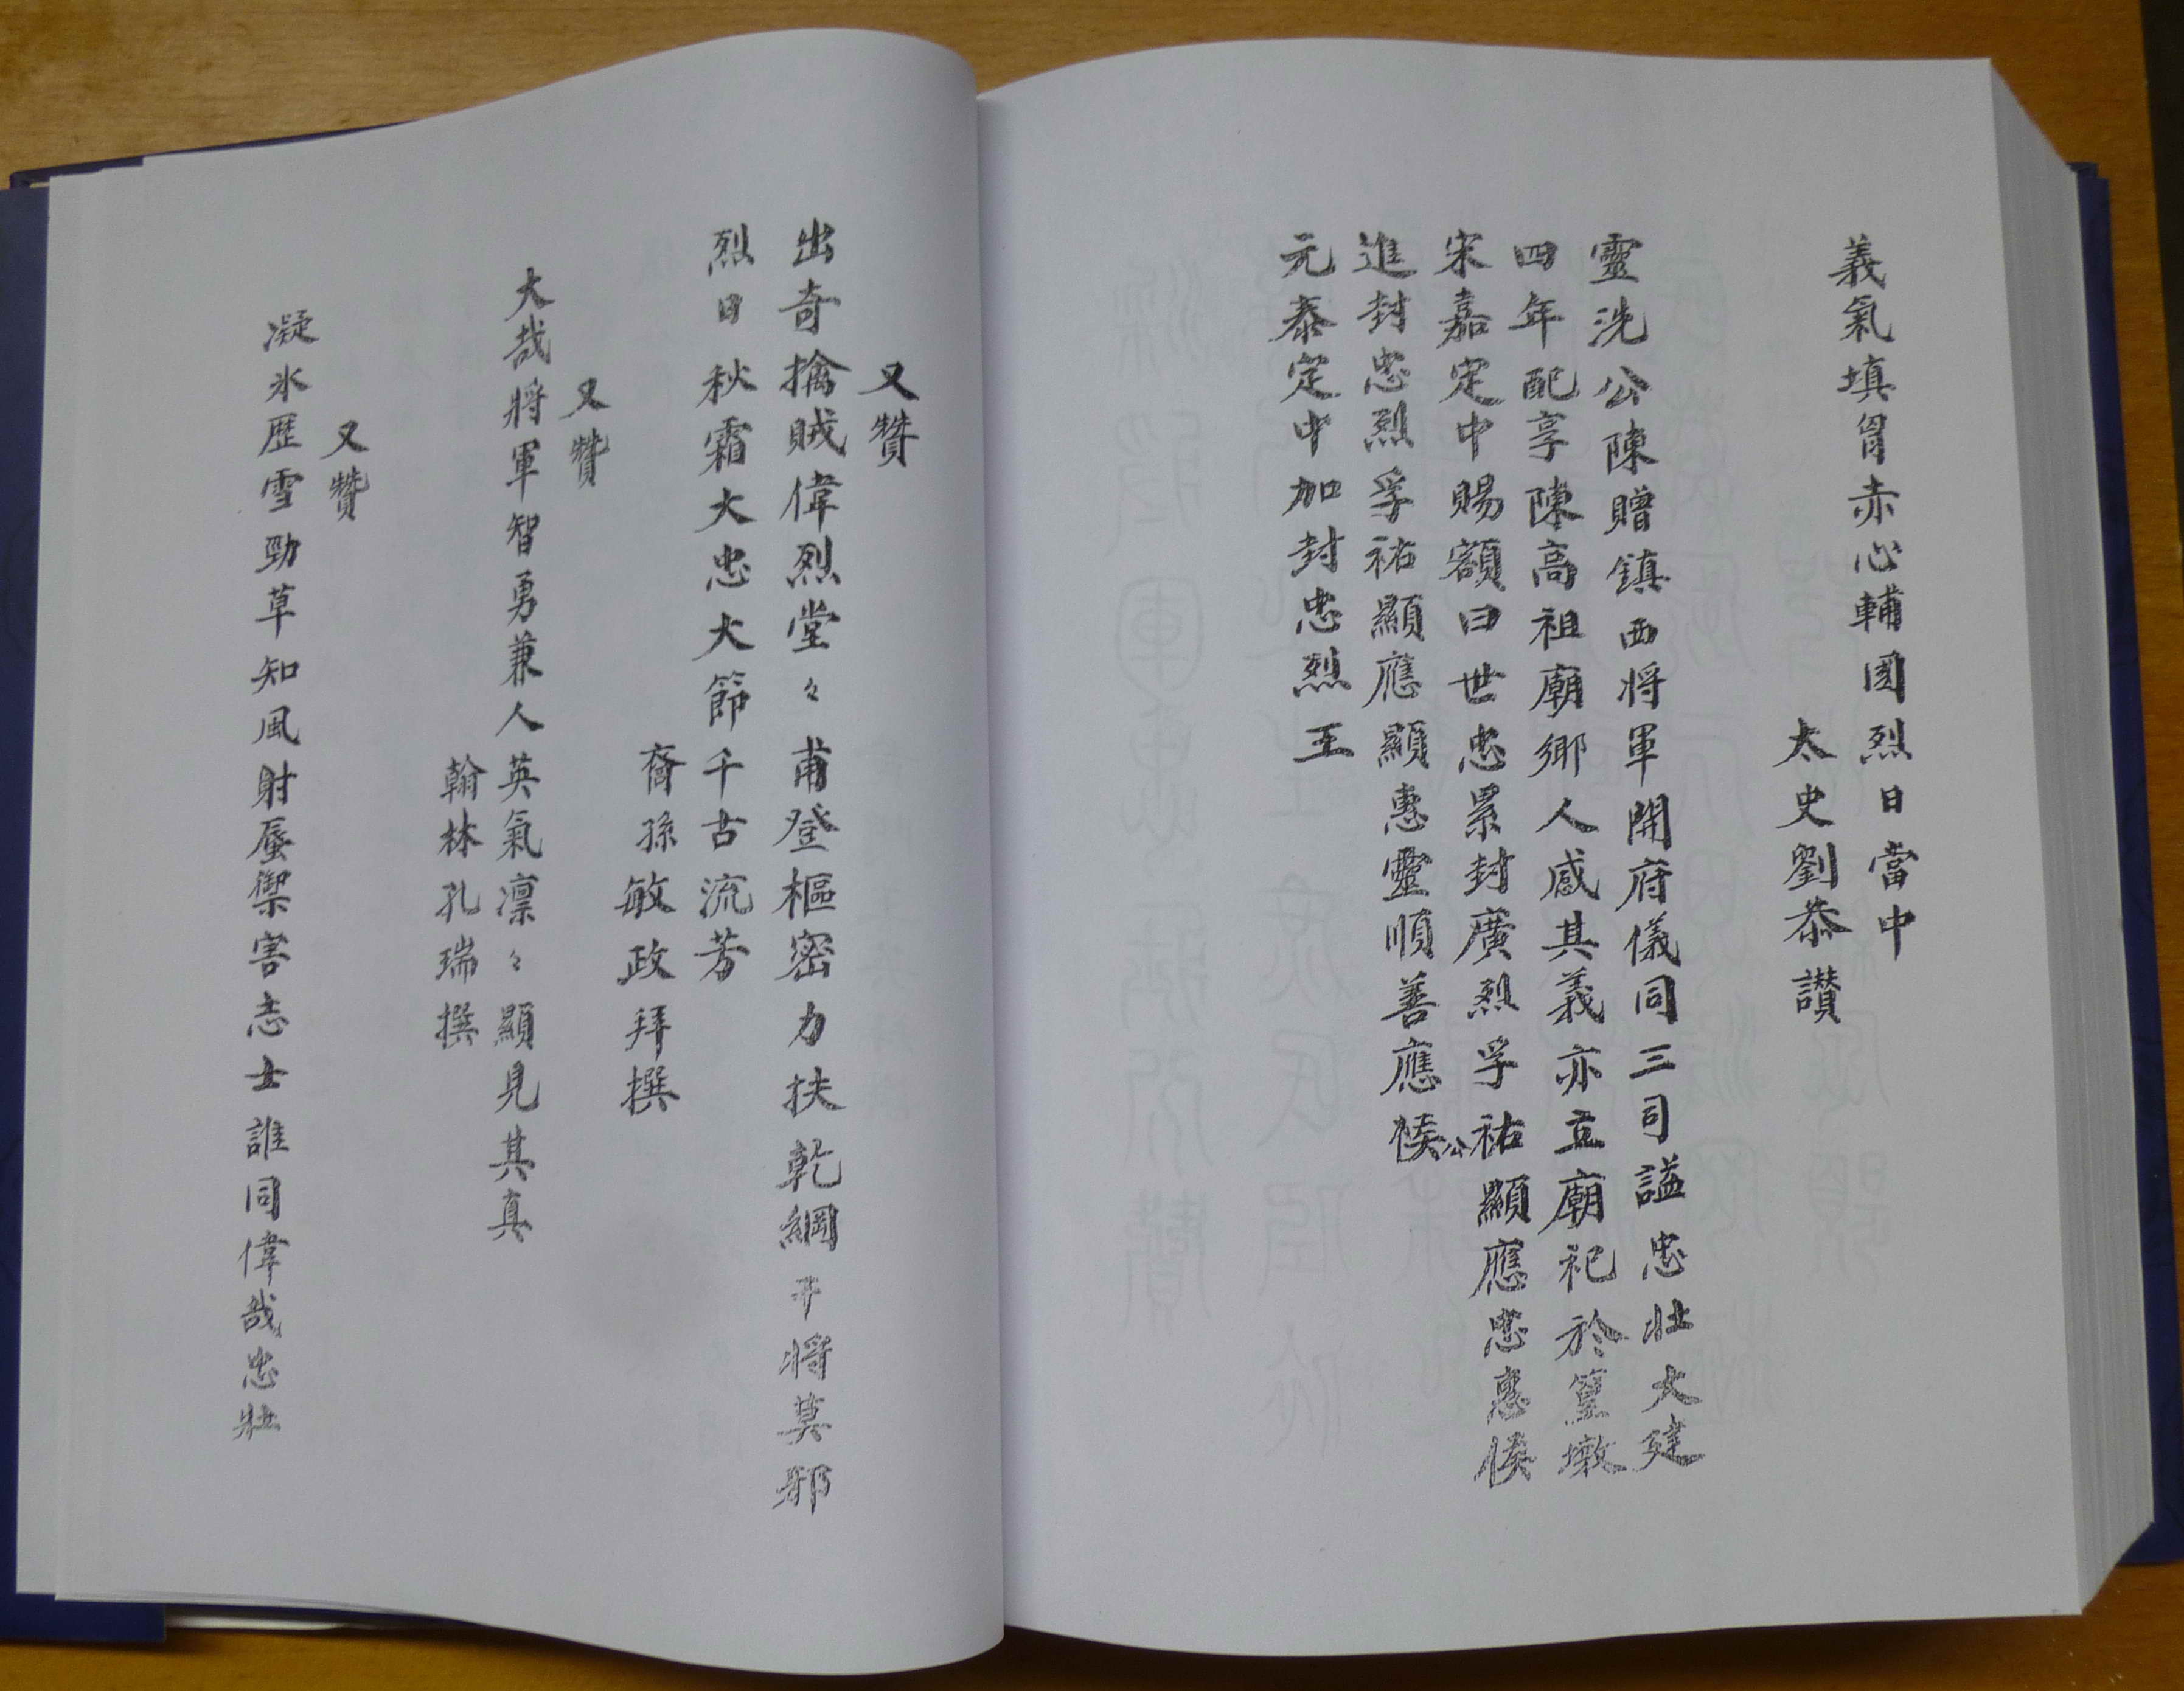 義氣填胷赤心輔国烈日當中
太史劉恭讃
靈洗公陳贈鎮西将軍開府儀同三司謚忠壮大建
四年配享陳高祖廟鄉人感其義亦立廟祀於篁墩
宋嘉定中賜額曰世忠累封廣烈孚祐顯應忠惠侯公
進封忠烈孚祐顯應顯惠靈順善應侯
元泰定中加封忠烈王
又贊
出奇擒賊偉烈堂々甫登樞密力扶乾綱干将莫邪
烈日秋霜大忠大節千古流芳
裔孫敏政拜撰
又贊
大哉將軍智勇兼人英氣凛々顯見其真
翰林孔瑞撰
又贊
凝氷歴雪勁草知風射蜃禦害志士誰同偉哉忠壮